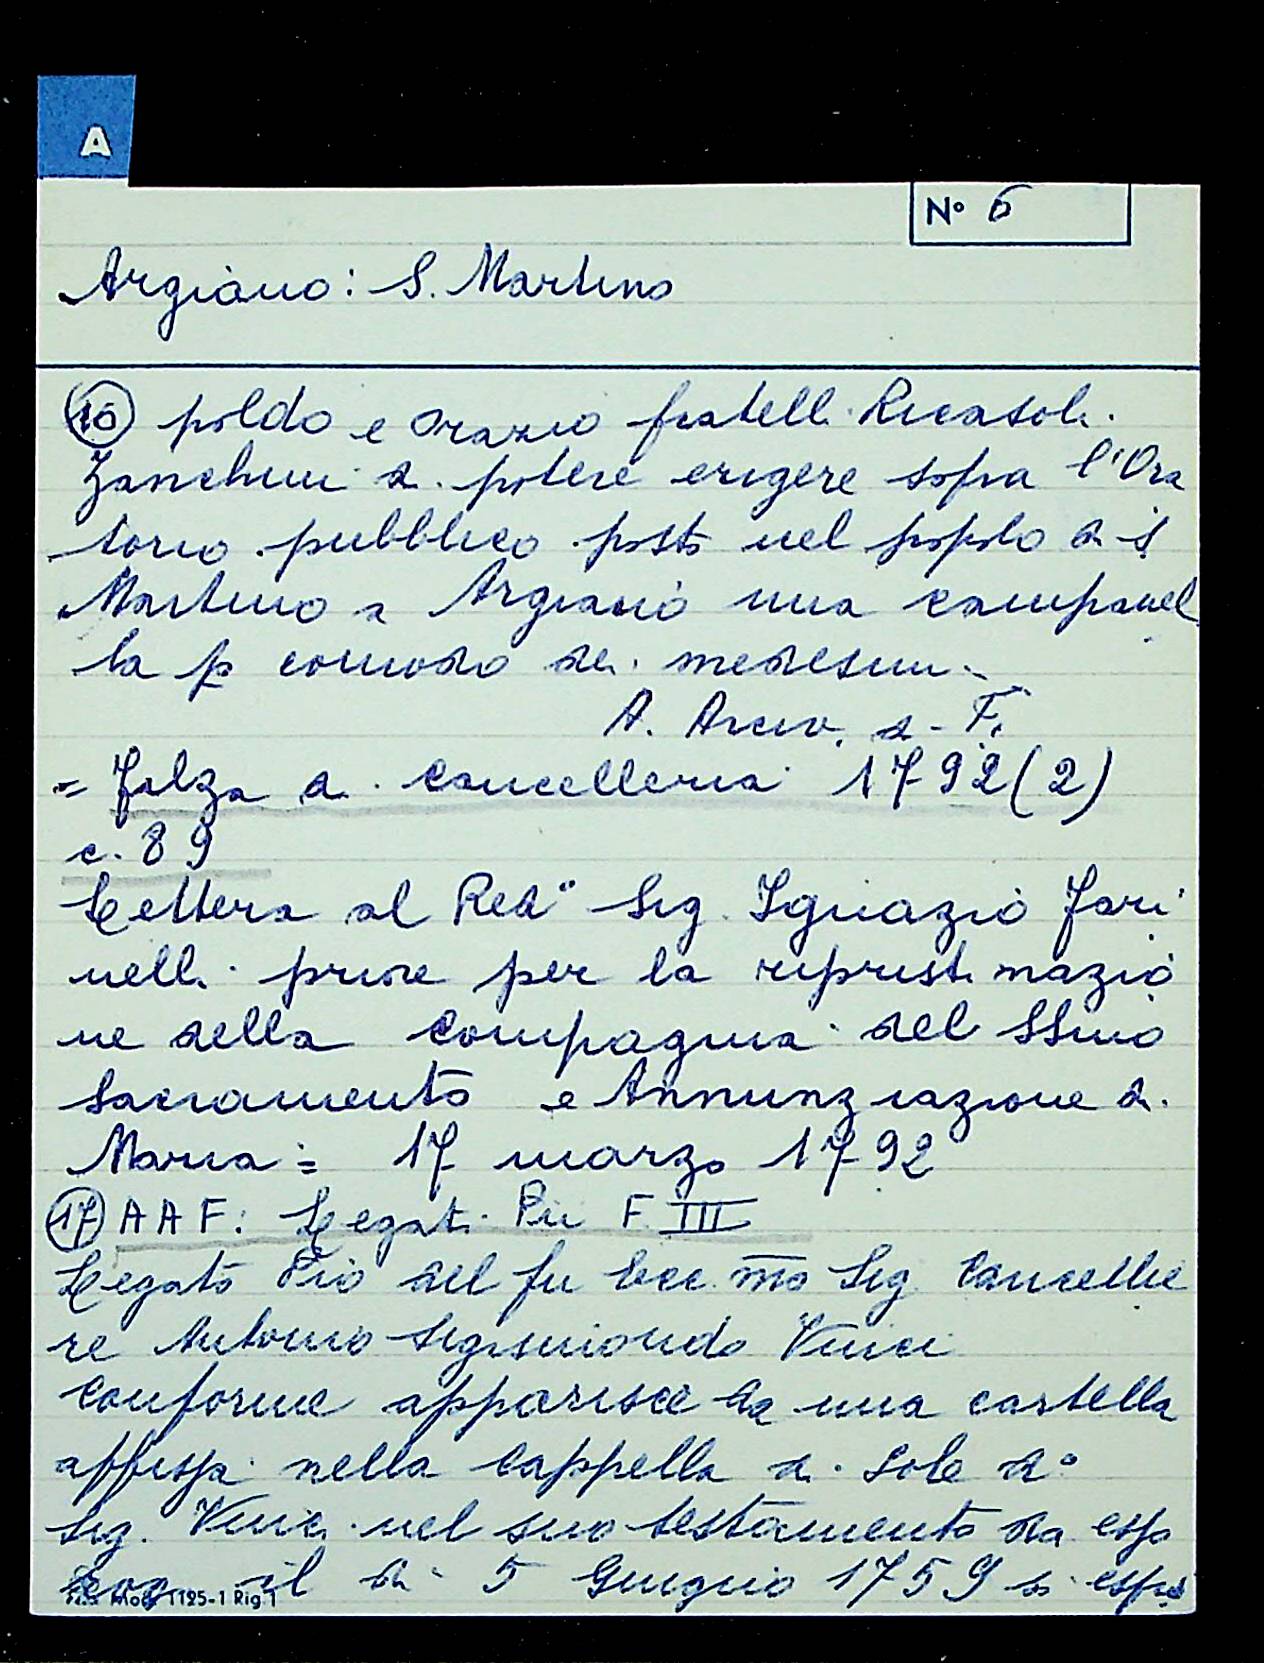 A
N° 6
Argiano: S. Martino
(16) poldo e Orazio fratelli Ricasoli
Zanchini di potere erigere sopra l'Ora
torio pubblico posto nel popolo di S
Martino a Argiano una campanel
la p comodo dei medesimi.
A. Arciv. di F.
= Filza di Cancelleria 1792 (2)
c. 89
Lettera al Red° Sig. Ignazio Fari
nelli priore per la ripristinazio
ne della Compagnia del SSmo
Sacramento e Annunziazione di
Maria = 17 marzo 1792
(17) A A F: Legati Pii F. III
Legato Pio del fu Ecc.mo Sig. Cancellie
re Antonio Sigismondo Vinci
conforme apparisce da una cartella
affissa nella Cappella di Sole d°
Sig. Vinci nel suo testamento da esso
il di 5 Giugno 1759 si
Mod. 1125-1 Rig. 1